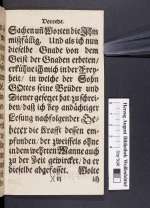 Vorrede.
Sachen uñ Worten die Jhm
mißfällig. Und als ich nun
dieselbe Gnade von dem
Geist der Gnaden erbeten/
erkühne ich mich in der Frey-
heit/ in welche der Sohn
GOttes seine Brüder und
Diener gesetzet hat zu schrei-
ben/ daß ich bey andächtiger
Lesung nachfolgender Ge-
better die Krafft dessen em-
pfunden/ der zweiffels ohne
in dem wehrten Manne auch
zu der Zeit gewircket/ da er
dieselbe abgefasset. Wolte
X iij ich
Herzog August Bibliothek Wolfenbüttel